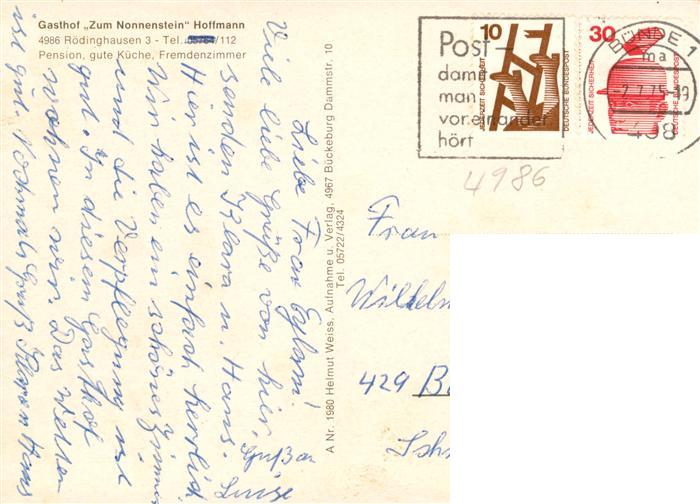 Gasthof „Zum Nonnenstein" Hoffmann
4986 Rödinghausen 3 - Tel. /112
Pension, gute Küche, Fremdenzimmer
Liebe Frau
Viele liebe Grüße von hier
senden Klara u. Hans.
Hier ist es einfach herrlich
Wir haben ein schönes Zimmer
und die Verpflegung ist
gut. In diesem Gasthof
wohnen wir. Das Wetter
ist gut. Nochmals Gruß Klara u Hans
Gruß an
Luise
A Nr. 1980 Helmut Weiss, Aufnahme u. Verlag, 4967 Bückeburg Dammstr. 10
Tel. 05722/4324
Post –
damit
man
voreinander
hört
10
JEDERZEIT SICHERHEIT
DEUTSCHE BUNDESPOST
30
JEDERZEIT SICHERHEIT
DEUTSCHE BUNDESPOST
BÜNDE 1
ma
-2.7.75-19
498
4986
Frau
Wilhelm
429 B